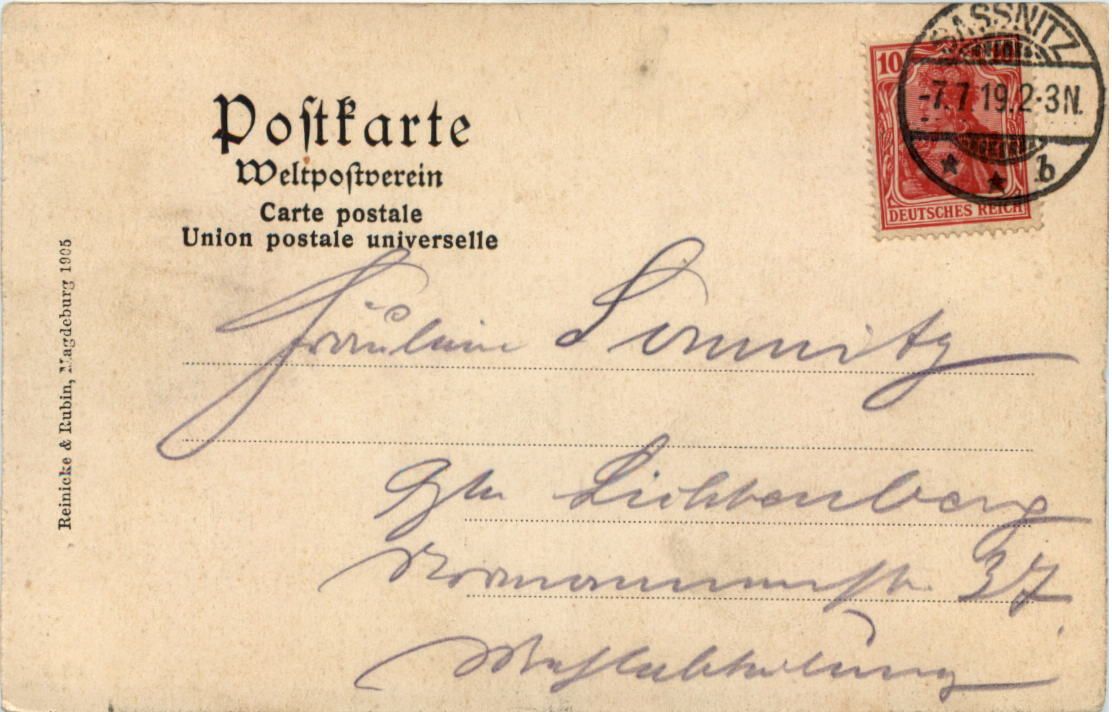 SASSNITZ
-7.7.19.2-3N.
* * b
10
DEUTSCHES REICH
Postkarte
Weltpostverein
Carte postale
Union postale universelle
Reinicke & Rubin, Magdeburg 1905
Fräulein
Lichtenberg
Normannenstr. 37